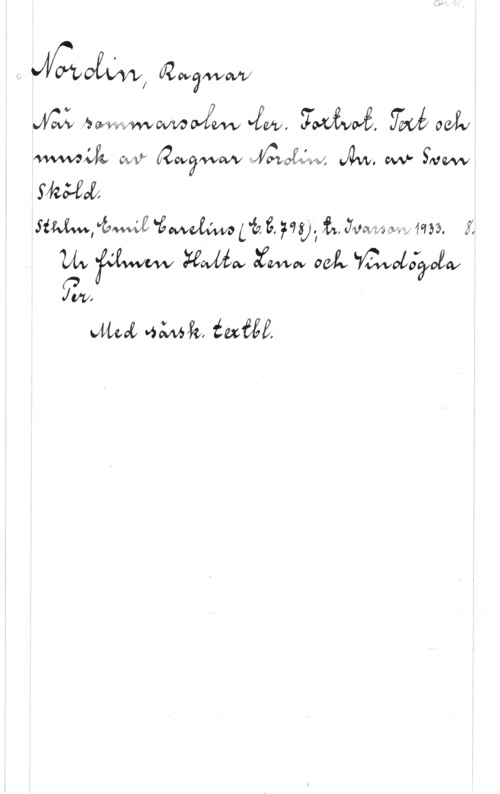 Ork.
Nordin, Ragnar
När sommarsolen ler. Foxtrot. Text och
musik av Ragnar Nordin. Arr. av Sven
Sköld.
Sthlm, Emil Carelius (E.C. 798); tr. Ivarson 1933. 8.
Ur filmen Halta Lena och Vindögda
Per.
Med särsk. textbl.